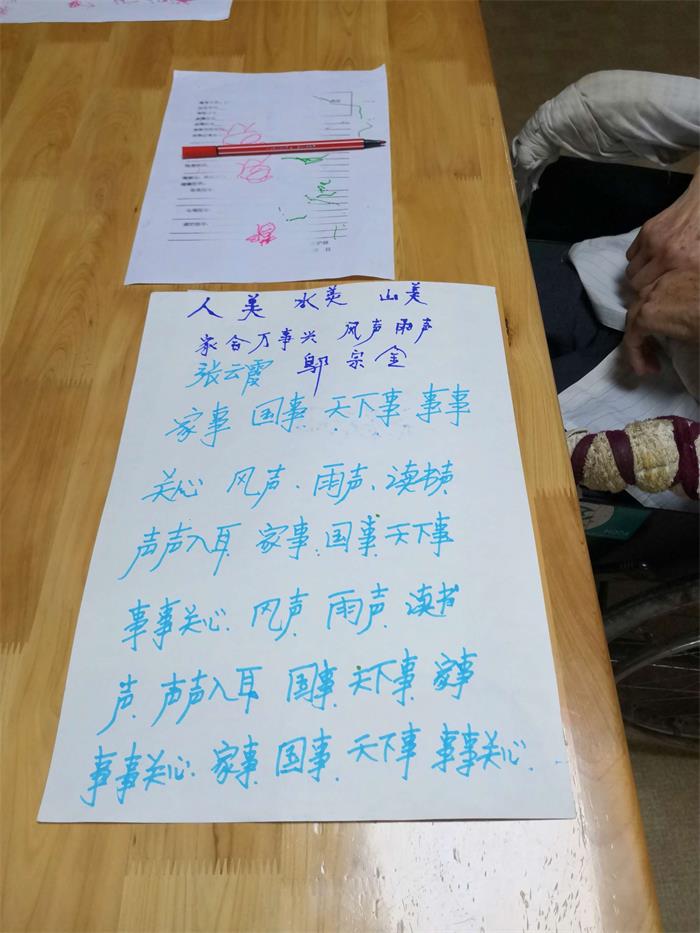 人美 水美 山美
家合万事兴 风声雨声
张云霞 鄔宗金
家事 国事 天下事 事事
关心 风声、雨声、读书声
声声入耳 家事.国事.天下事
事事关心.风声.雨声.读书
声.声声入耳 国事.天下事.家事
事事关心.家事.国事.天下事 事事关心.